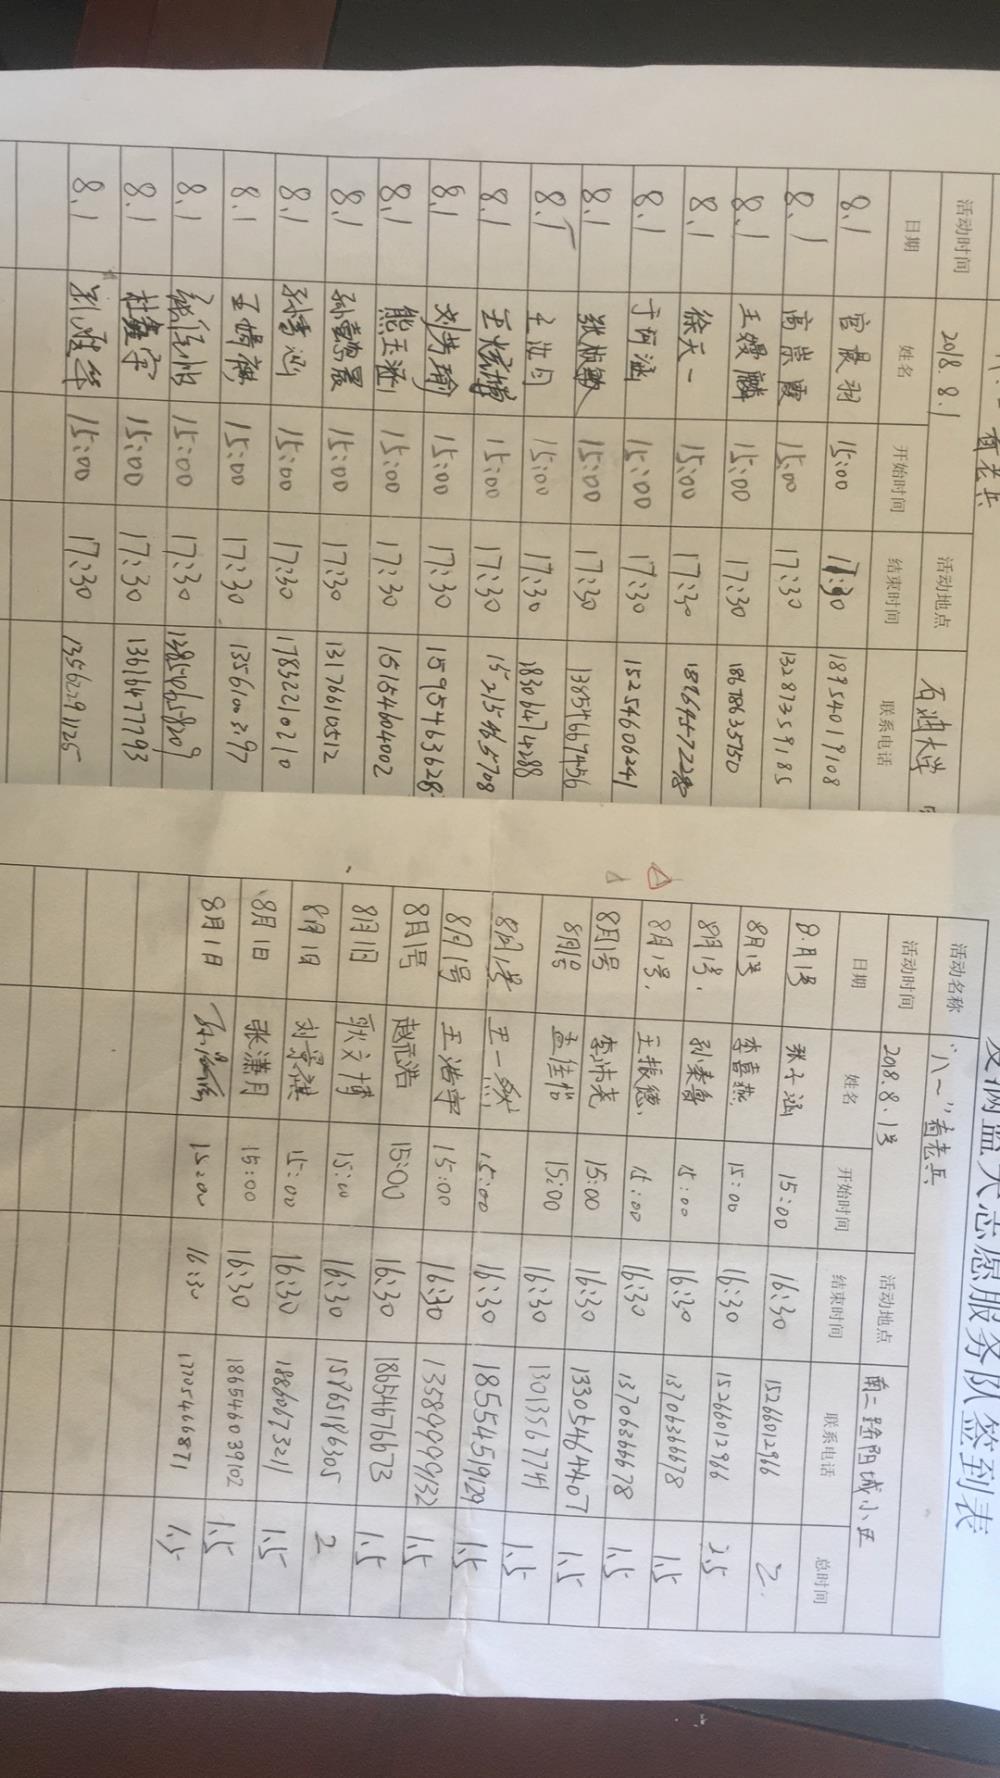 看老兵
活动时间 2018.8.1 活动地点 石油大学
日期 姓名 开始时间 结束时间 联系电话
8.1 官晨羽 15:00 17:30 18954019108
8.1 高崇霞 15:00 17:30 13287359185
8.1 王嫚麟 15:00 17:30 18678635750
8.1 徐天一 15:00 17:30
8.1 于珂涵 15:00 17:30 15254606241
8.1 张椒敏 15:00 17:30 13854667456
8.1 王汝均 15:00 17:30 18306474288
8.1 15:00 17:30 15215465708
8.1 刘芳瑜 15:00 17:30 1595463628
8.1 熊玉涵 15:00 17:30 15154604002
8.1 15:00 17:30 13176610512
8.1 孙雪涵 15:00 17:30 17832210210
8.1 15:00 17:30 13561003297
8.1 15:00 17:30
8.1 15:00 17:30 13616477793
8.1 15:00 17:30 13562291125
志愿服务队签到表
活动名称 “八一”看老兵
活动时间 2018.8.1号 活动地点 南二路阳城小区
日期 姓名 开始时间 结束时间 联系电话 总时间
8.月1号 张子涵 15:00 16:30 15266012966 2
8月1号 李喜燕 15:00 16:30 15266012966 2.5
8月1号. 孙秦鲁 15:00 16:30 13706366678 1.5
8月1号. 王振德 15:00 16:30 13706366678 1.5
8月1号 李沛尧 15:00 16:30 13305464407 1.5
8月1号 孟佳怡 15:00 16:30 13013567741 1.5
8月1号 王一然 15:00 16:30 18554519129 1.5
8月1号 王浩宇 15:00 16:30 13589999132 1.5
8月1号 赵元浩 15:00 16:30 18654676673 1.5
8月1日 耿文博 15:00 16:30 15865186305 2
8月1日 刘景祺 15:00 16:30 18860673211 1.5
8月1日 张潇月 15:00 16:30 18654603910 1.5
8月1日 15:00 16:30 17705466871 1.5